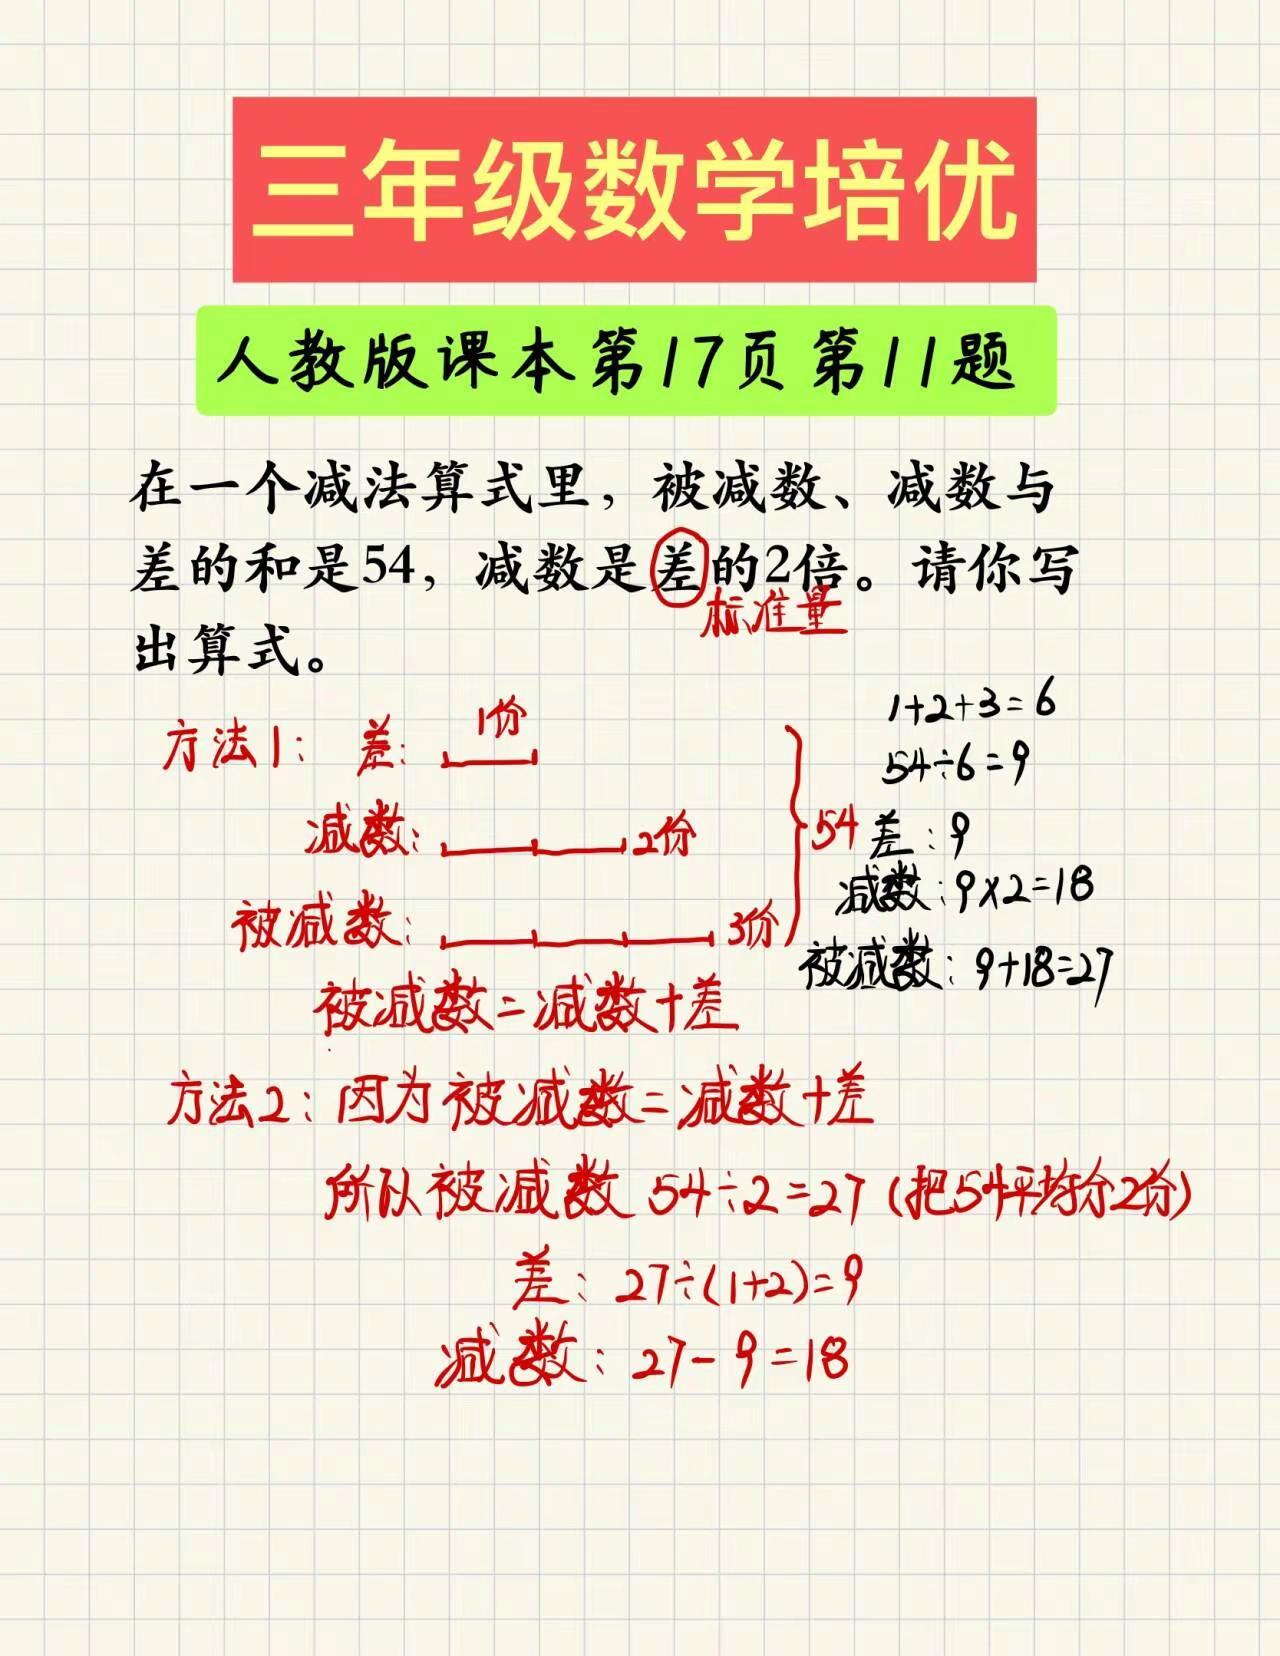 三年级数学培优
人教版课本第17页第11题
在一个减法算式里，被减数、减数与
差的和是54，减数是差的2倍。请你写
标准量
出算式。
方法1：差：1份
减数：2份
被减数：3份
54
被减数=减数+差
1+2+3=6
54÷6=9
差：9
减数：9×2=18
被减数：9+18=27
方法2：因为被减数=减数+差
所以被减数 54÷2=27（把54平均分2份）
差：27÷(1+2)=9
减数：27-9=18